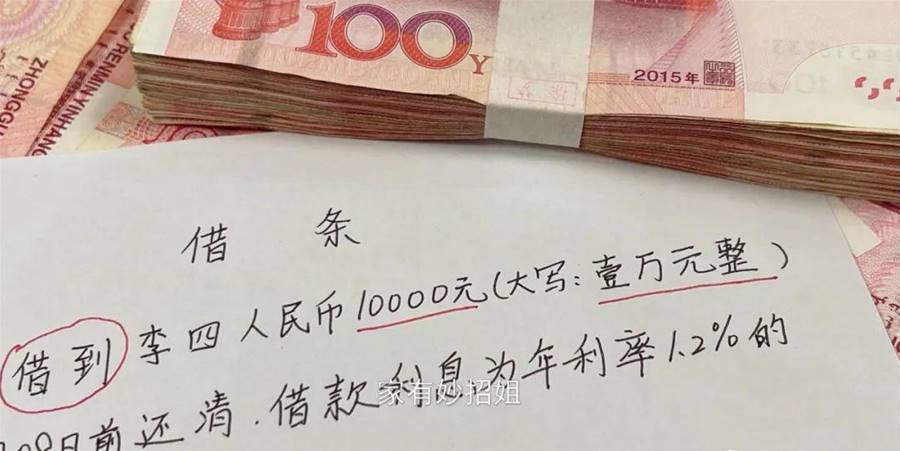 ZHONGGU
RENMINYINHANG
100
Y
2015年
借 条
借到 李四人民币10000元(大写:壹万元整)
日前还清.借款利息为年利率1.2%的
家有妙招姐